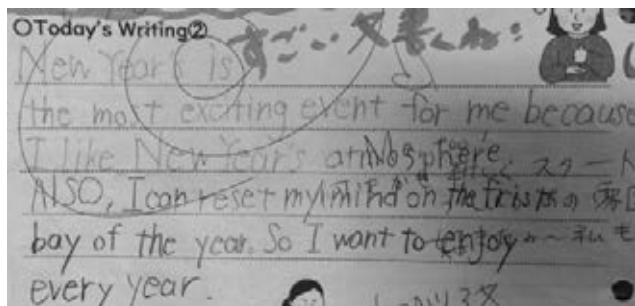 ○Today's Writing②
すごい文書くね!
New Year's is
the most exciting event for me because
I like New Year's atmosphere
スタート
ALSO, I can reset my mind on the frist
bay of the year. So I want to enjoy
私も
every year.